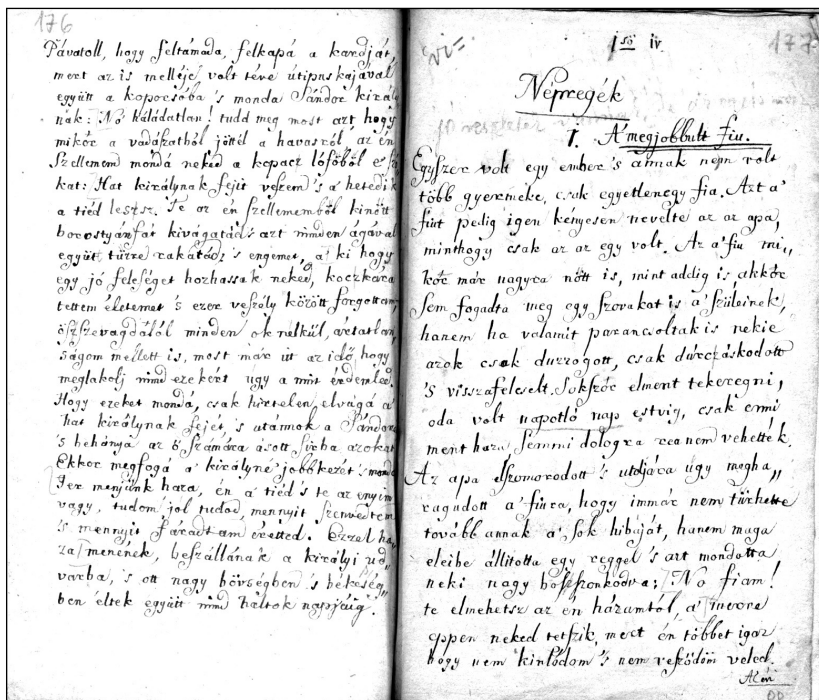 176
Távatoll, hogy feltámada, felkapá a kardját,
mert az is melléje volt téve útipuskájával
együtt a koporsóba 's monda Sándor király
nak: No háládatlan! tudd meg most azt hogy
mikor a vadászatból jöttél a havasról, az én
Szellemem mondá neked a kopacz lófőből e szó
kat: Hat királynak fejit veszem 's a hetedik
a tiéd leszsz. Te az én szellememből kinőtt
borostyánfát kivágatád 's azt minden ágával
együtt tűzre rakatád 's engemet, a ki hogy
egy jó feleséget hozhassak neked, koczkára
tettem életemet 's ezer veszély között forgottam,
öszszevagdalál minden ok nélkül, ártatlan
ságom mellett is, most már üt az idő, hogy
meglakolj mind ezekért úgy a mint érdemled.
Hogy ezeket mondá, csak hirtelen elvágá a
hat királynak fejét, 's utánnok a Sándorét
's behányá az ő számára ásott sirba azokat.
Ekkor megfogá a' királyné jobbkezét 's monda
Jer menjünk haza, én a tiéd 's te az enyém
vagy, tudom jól tudod, mennyit szenvedtem
's mennyit fáradtam éretted. Ezzel ha„
za menének, beszállának a királyi ud„
varba, 's ott nagy bővségben 's békeség„
ben éltek együtt mind háltok napjáig.
vi=.
1ső iv
177
Népregék
10 részletes
I. A' megjobbult fiu.
Egyszer volt egy ember 's annak nem volt
több gyermeke, csak egyetlenegy fia. Azt a'
fiut pedig igen kényesen nevelte az az apa,
minthogy csak az az egy volt. Az a' fiu mi„
kor már nagyra nőtt is, mint addig is, akkor
sem fogadta meg egy szovakat is a' szüleinek,
hanem ha valamit parancsoltak is nekie
azok csak duzzogott, csak durczáskodott
's visszafelcselt. Sokszor elment tekeregni,
oda volt napotló nap estvig, csak enni
ment haza, semmi dologra reá nem vehették.
Az apa elszomorodott 's utoljára úgy megha„
ragudott a' fiura, hogy immár nem türhette
tovább annak a' sok hibáját, hanem maga
eleibe állitotta egy reggel 's azt mondotta
neki nagy boszszonkodva; No fiam!
te elmehetsz az én házamtól, a' merre
éppen neked tetszik, mert én többet igaz
hogy nem kinlódom 's nem vesződöm veled.
Az én